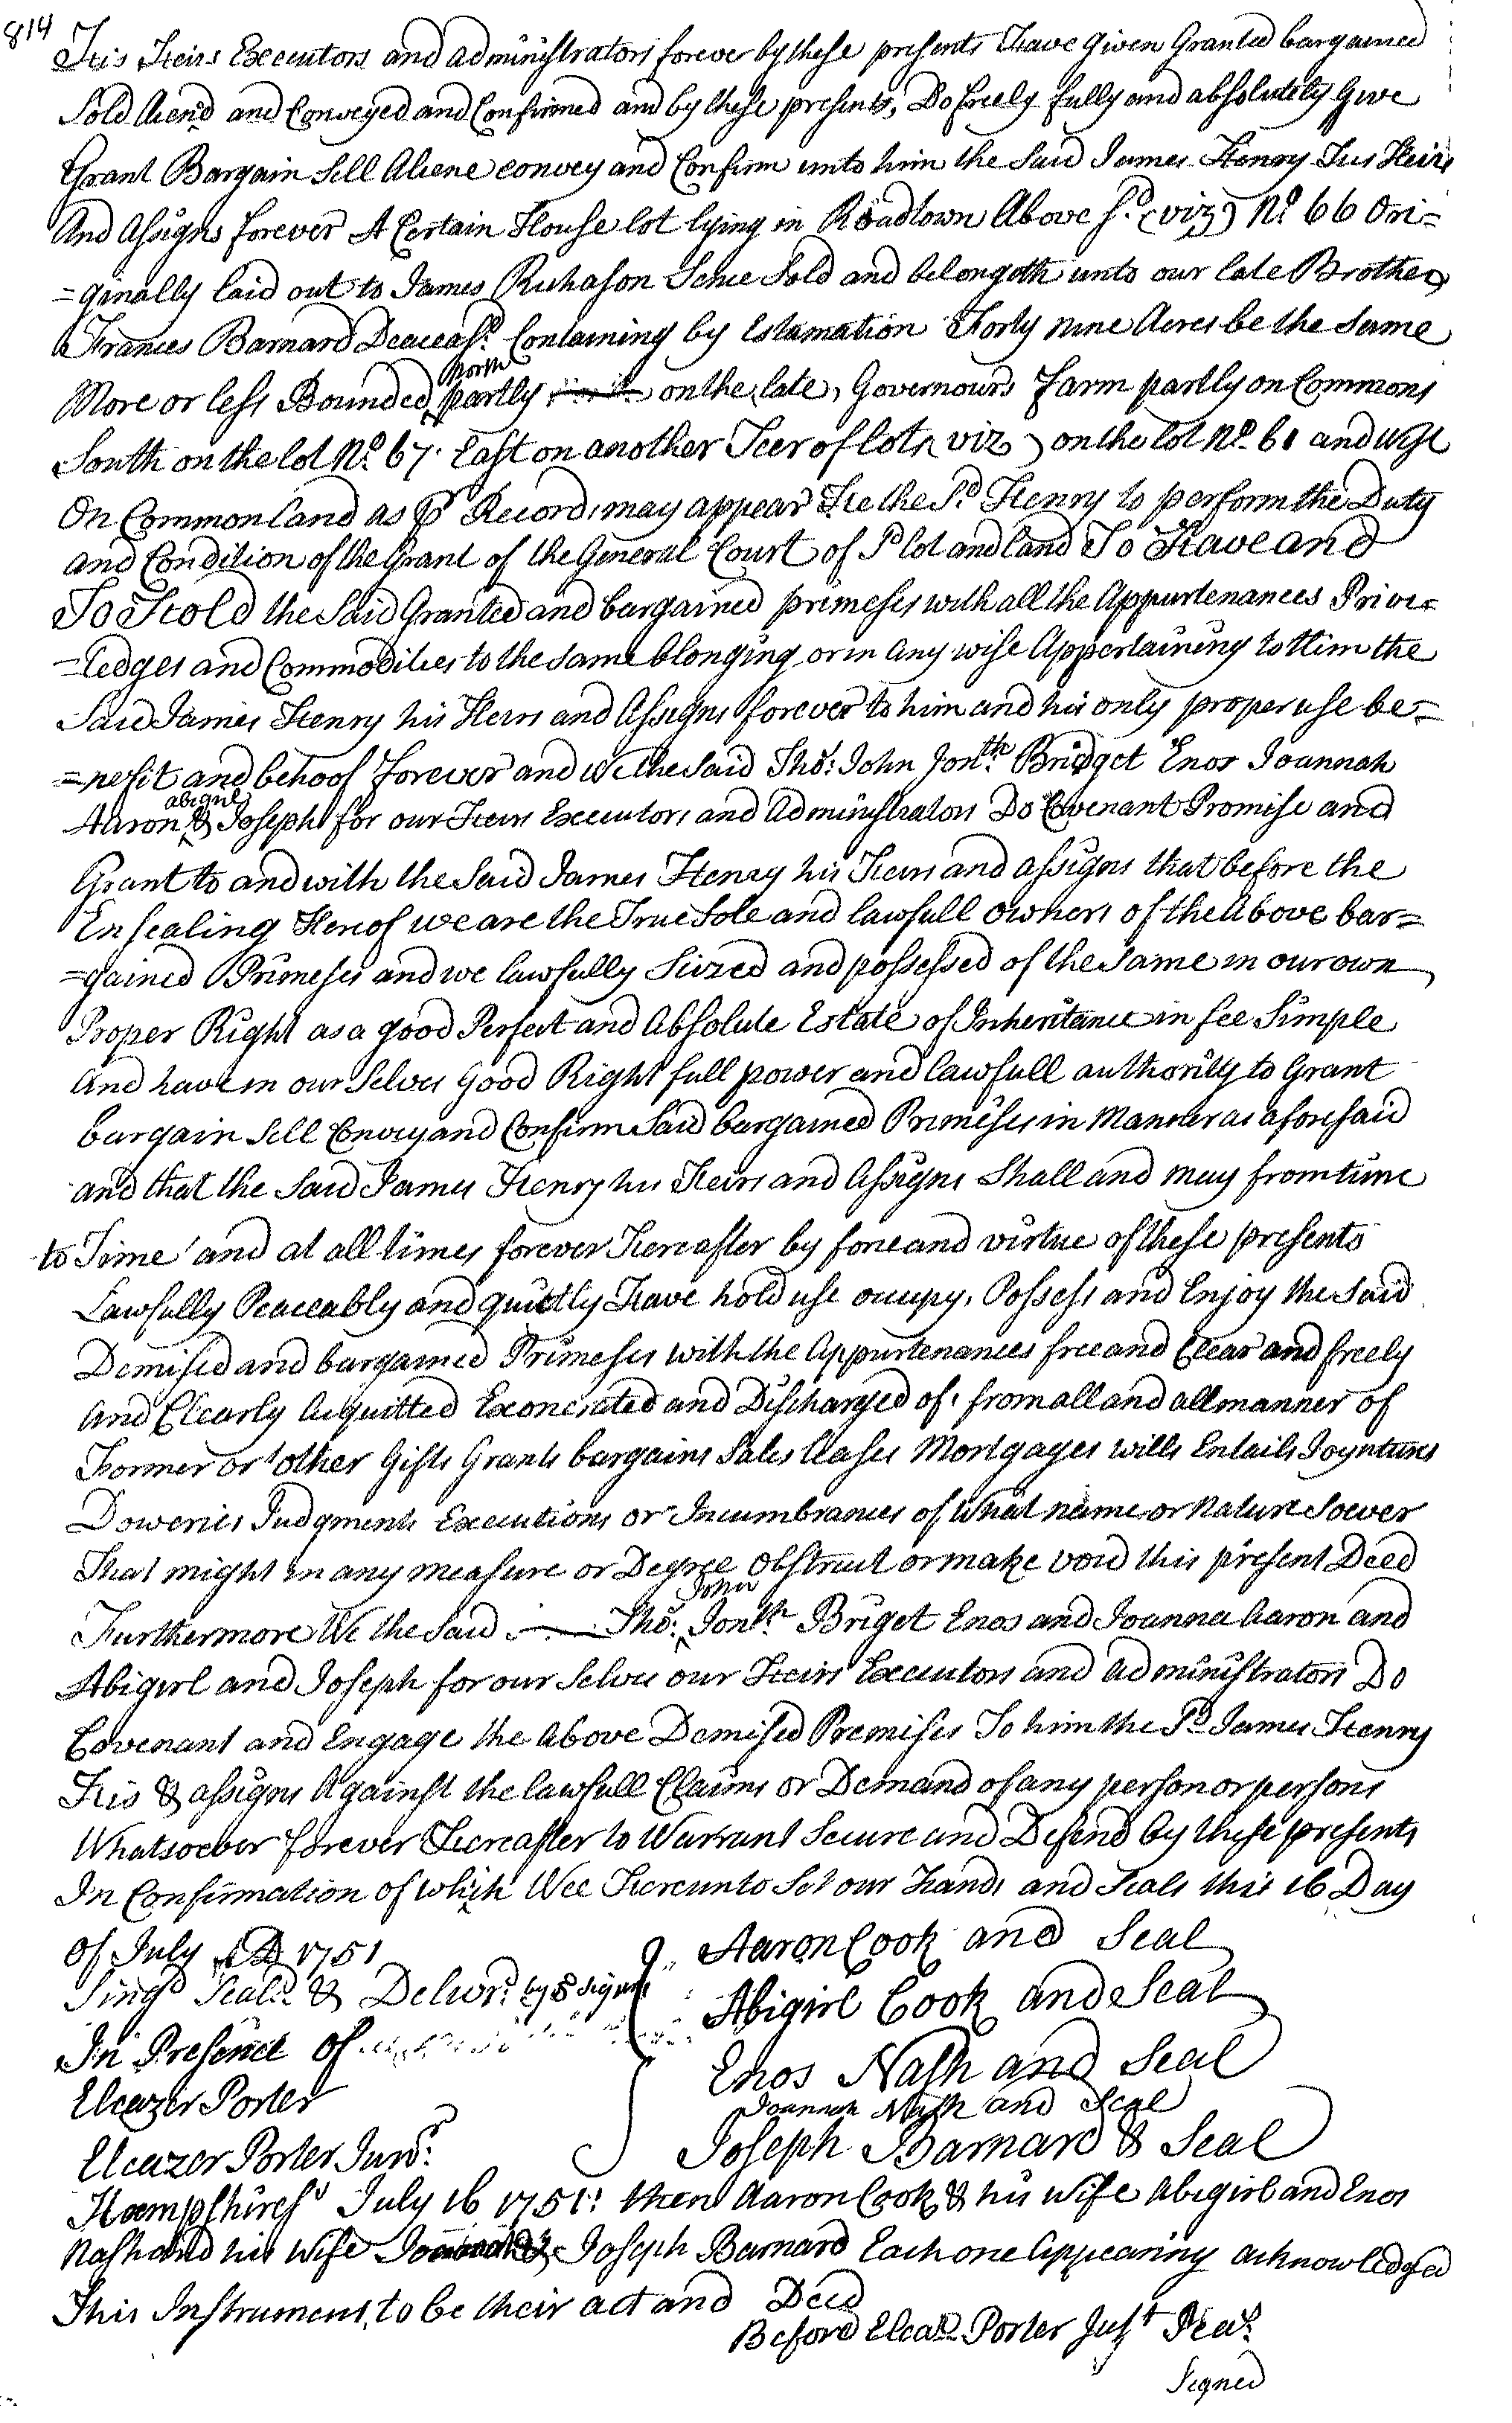 814
His Heirs Executors and administrators forever by these presents Have Given Granted bargained
Sold Aliend and Conveyed and Confirmed and by these presents, Do freely fully and absolutely Give
Grant Bargain Sell Aliene convey and Confirm unto him the Said James Henry his Heirs
And Assigns forever A Certain House lot lying in Roadtown Above sd. (viz) No. 66 Ori=
=ginally laid out to James Richason Sence Sold and belongeth unto our late Brother
Frances Barnard Deceasd. Containing by Estamation Forty nine Acres be the Same
north
More or less Bounded partly on the late, Governours Farm partly on Commons
South on the lot No. 67. East on another Teer of lots viz on the lot No. 61 and West
On Common land as pr Record, may appear He the sd. Henry to perform the Duty
and Condition of the Grant of the General Court of sd lot and land To Have and
To Hold the Said Granted and bargained primeses with all the Appurtenances Prive=
=ledges and Commodities to the Same blonging or in Any wise Appertaining to Him the
Said James Henry his Heirs and Assigns forever to him and his only proper use be=
=nefit and behoof Forever and We the Said Thos: John Jonth. Bridget Enos Joannah
abigirl
Aaron & Joseph for our Heirs Executors and Administrators Do Covenant Promise and
Grant to and with the Said James Henry his Heirs and assigns that before the
Ensealing Hereof we are the True Sole and lawfull owners of the Above bar=
=gained Primeses and we lawfully Sized and possessed of the Same in our own
Proper Right as a good Perfect and Absolute Estate of Inheritance in fee Simple
And have in our Selves Good Right full power and lawfull authority to Grant
bargain Sell Convey and Confirm Said bargained Primeses in Manner as aforesaid
and that the Said James Henry his Heirs and Assigns Shall and may from time
to Time and at all times forever Hereafter by force and virtue of these presents
Lawfully Peaceably and quietly Have hold use occupy, Possess and Enjoy the Said
Demised and bargained Primeses with the Appurtenances free and Clear and freely
And Clearly Acquitted Exonerated and Discharged of, from all and all manner of
Former or other Gifts Grants bargains Sales leases Mortgages wills Entails Joyntures
Doweries Judgments Executions or Incumbrances of What name or Nature Soever
That might in any measure or Degree obstruct or make void this present Deed
John
Furthermore We the Said Thos. Jonth. Briget Enos and Joanna Aaron and
Abigirl and Joseph for our Selves our Heirs Executors and administrators Do
Covenant and Engage the Above Demised Premises To him the sd James Henry
His & assigns Against the lawfull Claims or Demand of any person or persons
Whatsoever forever Hereafter to Warrant Secure and Defend by these presents
In Confirmation of which Wee Hereunto Set our Hands and Seals this 16 Day
of July AD 1751
Aaron Cook and Seal
Singd Seald. & Delivrd. by 5 signrs
Abigirl Cook and Seal
In Presence of
Enos Nash and Seal
Eleazer Porter
Joannah Nash and Seal
Eleazer Porter Junr:
Joseph Barnard & Seal
Hampshires July 16 1751: then Aaron Cook & his wife Abigirl and Enos
Nash and his Wife Joannah & Joseph Barnard Each one Appearing acknowledged
This Instrument, to be their act and Deed
Before Eleazr. Porter Just Peas.
Signed